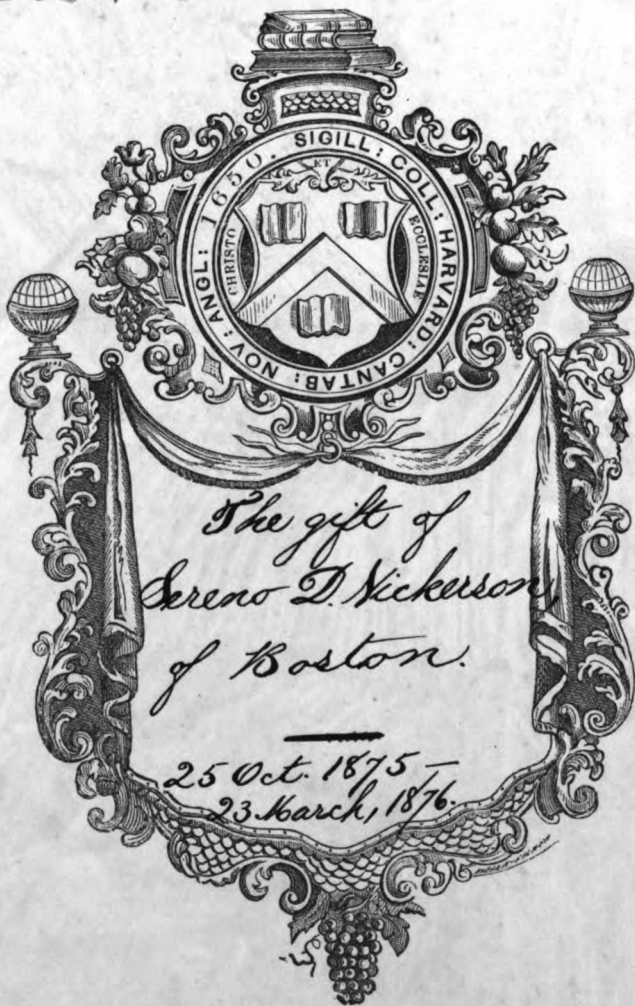 SIGILL: COLL: HARVARD: CANTAB: NOV: ANGL: 1650.
CHRISTO ET ECCLESIAE
The gift of
Sereno D. Nickerson,
of Boston.
25 Oct. 1875 –
23 March, 1876.